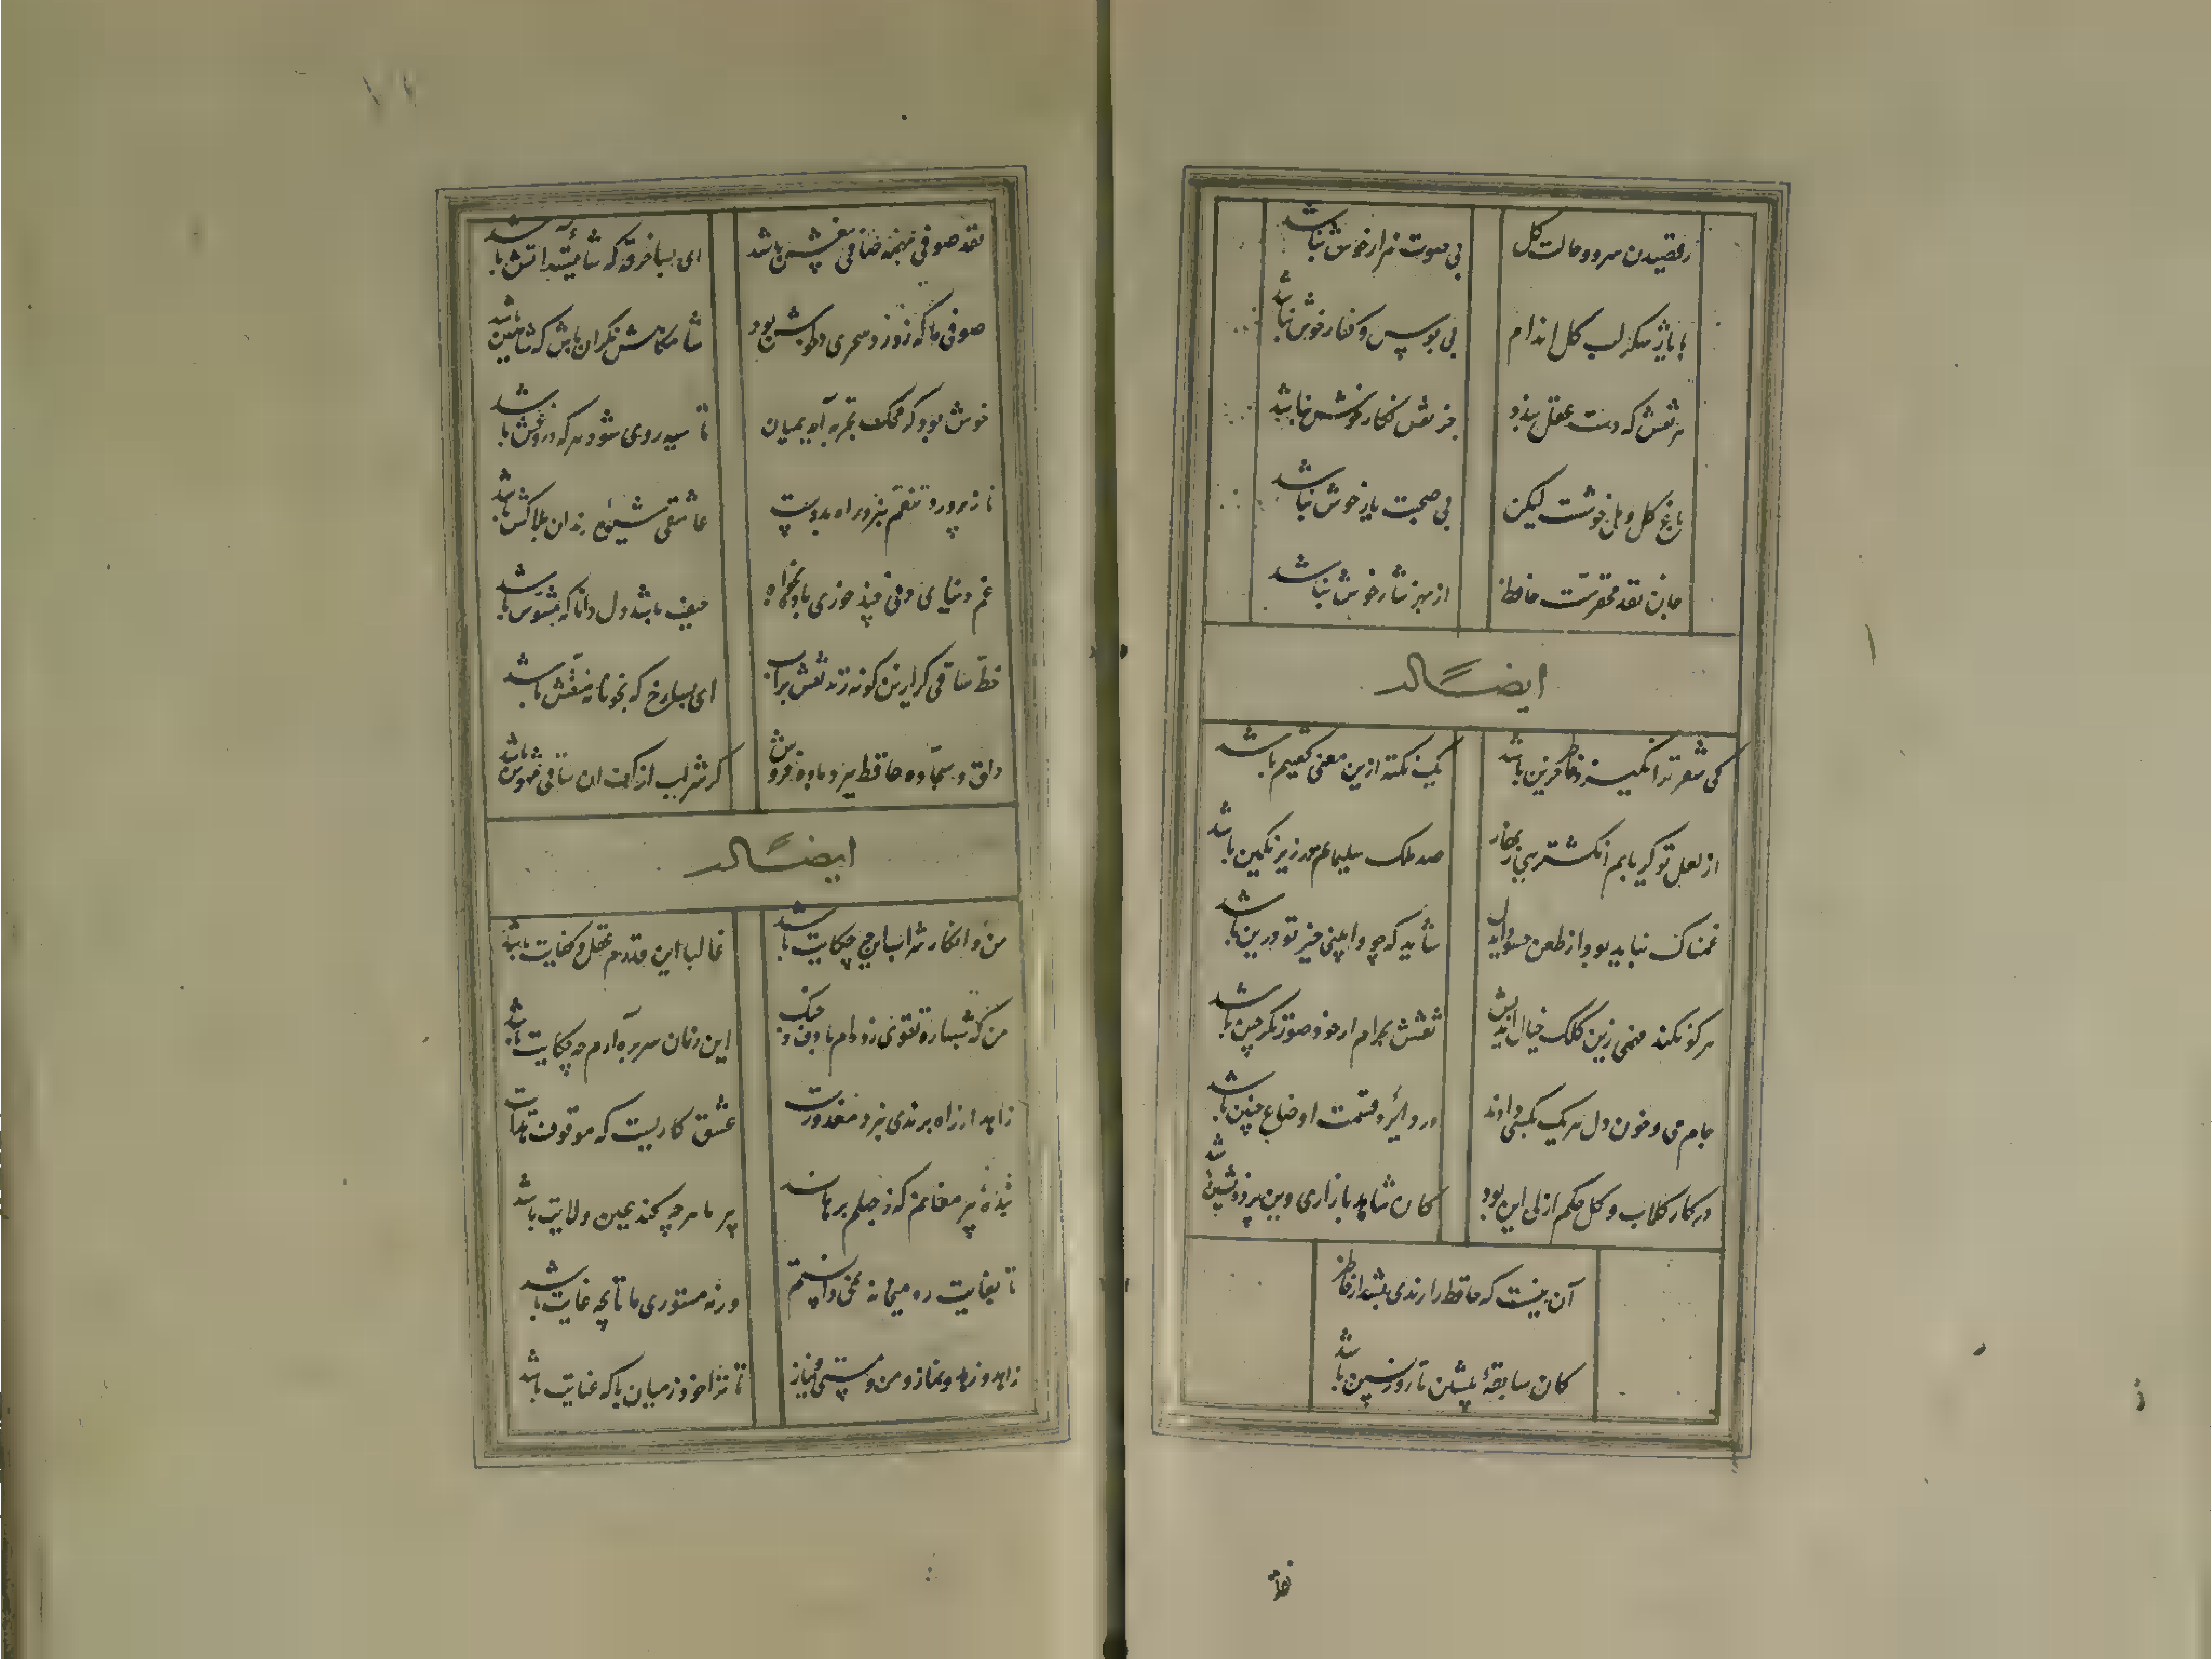 رقصیدن سرو و حالت گل
بی صوت هزار خوش نباشد
با یار شکر لب گل اندام
بی بوس و کنار خوش نباشد
هر نقش که دست عقل بندد
جز نقش نگار خوش نباشد
باغ گل و مل خوشست لیکن
بی صحبت یار خوش نباشد
جان نقد محقرست حافظ
از بهر نثار خوش نباشد
ایضاً له
کی شعر تر انگیزد خاطر که حزین باشد
یک نکته ازین معنی گفتیم و همین باشد
از لعل تو گر یابم انگشتری زنهار
صد ملک سلیمانم در زیر نگین باشد
غمناک نباید بود از طعن حسود ایدل
شاید که چو وابینی خیر تو درین باشد
هر کو نکند فهمی زین کلک خیال انگیز
نقشش بحرام ار خود صورتگر چین باشد
جام می و خون دل هر یک بکسی دادند
در دایره قسمت اوضاع چنین باشد
در کار گلاب و گل حکم ازلی این بود
کان شاهد بازاری وین پرده نشین باشد
آن نیست که حافظ را رندی بشد از خاطر
کان سابقهٔ پیشین تا روز پسین باشد
نقد
نقد صوفی نه همه صافی بیغش باشد
ای بسا خرقه که شایستهٔ آتش باشد
صوفی ما که ز ورد سحری مست شدی
شامگاهش نگران باش که سرخوش باشد
خوش بود گر محک تجربه آید بمیان
تا سیه روی شود هر که دروغش باشد
ناز پرورد تنعم نبرد راه بدوست
عاشقی شیوهٔ رندان بلاکش باشد
غم دنیای دنی چند خوری باده بخواه
حیف باشد دل دانا که مشوش باشد
خط ساقی گر ازین گونه زند نقش بر آب
ای بسا رخ که بخونابه منقش باشد
دلق و سجاده حافظ ببرد باده فروش
گر شراب از کف آن ساقی مهوش باشد
ایضاً له
من و انکار شراب این چه حکایت باشد
غالبا این قدرم عقل و کفایت باشد
من که شبها ره تقوی زده‌ام با دف و چنگ
این زمان سر بره آرم چه حکایت باشد
زاهد ار راه برندی نبرد معذورست
عشق کاریست که موقوف هدایت باشد
بندهٔ پیر مغانم که ز جهلم برهاند
پیر ما هر چه کند عین ولایت باشد
تا بغایت ره میخانه نمی‌دانستم
ورنه مستوری ما تا بچه غایت باشد
زاهد و زهد و نماز و من و مستی و نیاز
تا ترا خود ز میان با که عنایت باشد